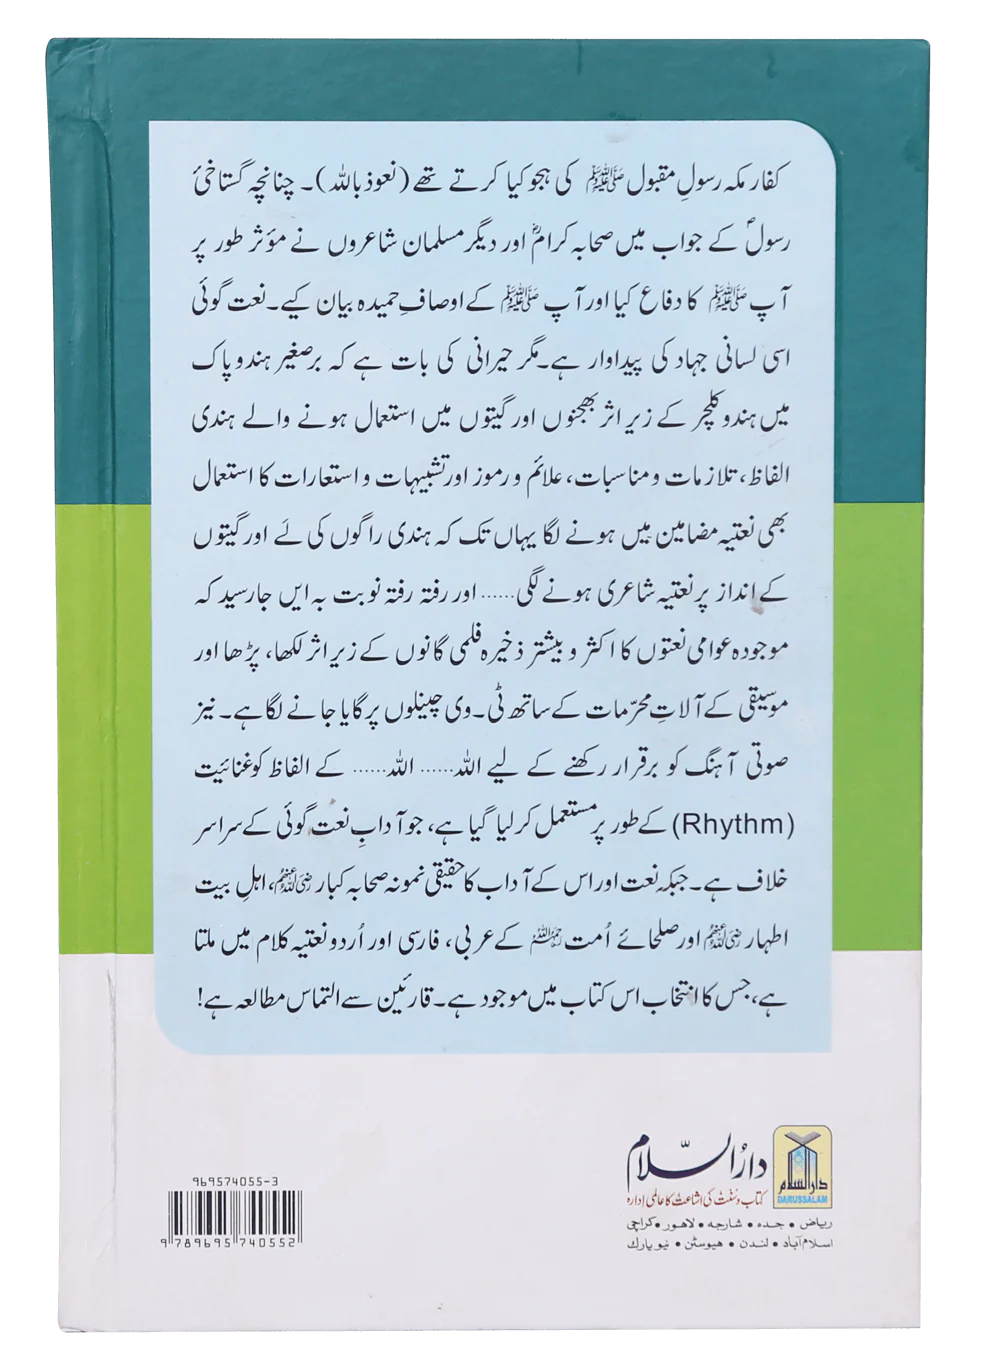 کفار مکہ رسولِ مقبول ﷺ کی ہجو کیا کرتے تھے (نعوذ باللہ)۔ چنانچہ گستاخیٔ
رسولؐ کے جواب میں صحابہ کرامؓ اور دیگر مسلمان شاعروں نے مؤثر طور پر
آپ ﷺ کا دفاع کیا اور آپ ﷺ کے اوصافِ حمیدہ بیان کیے۔ نعت گوئی
اسی لسانی جہاد کی پیداوار ہے۔ مگر حیرانی کی بات ہے کہ برصغیر ہندو پاک
میں ہندو کلچر کے زیر اثر بھجنوں اور گیتوں میں استعمال ہونے والے ہندی
الفاظ، تلازمات و مناسبات، علائم و رموز اور تشبیہات و استعارات کا استعمال
بھی نعتیہ مضامین میں ہونے لگا یہاں تک کہ ہندی راگوں کی لَے اور گیتوں
کے انداز پر نعتیہ شاعری ہونے لگی...... اور رفتہ رفتہ نوبت بہ ایں جا رسید کہ
موجودہ عوامی نعتوں کا اکثر و بیشتر ذخیرہ فلمی گانوں کے زیر اثر لکھا، پڑھا اور
موسیقی کے آلاتِ محرّمات کے ساتھ ٹی۔وی چینلوں پر گایا جانے لگا ہے۔ نیز
صوتی آہنگ کو برقرار رکھنے کے لیے اللہ...... اللہ...... کے الفاظ کو غنائیت
(Rhythm) کے طور پر مستعمل کر لیا گیا ہے، جو آدابِ نعت گوئی کے سراسر
خلاف ہے۔ جبکہ نعت اور اس کے آداب کا حقیقی نمونہ صحابہ کبار رضی اللہ عنہم، اہلِ بیت
اطہار رضی اللہ عنہم اور صلحائے اُمت رحمہم اللہ کے عربی، فارسی اور اُردو نعتیہ کلام میں ملتا
ہے، جس کا انتخاب اس کتاب میں موجود ہے۔ قارئین سے التماس مطالعہ ہے!
دارُالسّلام
کتاب و سُنّت کی اشاعت کا عالمی ادارہ
ریاض • جدہ • شارجہ • لاہور • کراچی
اسلام آباد • لندن • هیوسٹن • نیو یارك
دارالسلام
DARUSSALAM
969574055-3
9 789695 740552